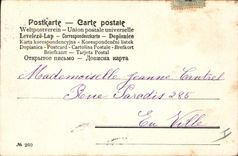 Postkarte – Carte postale
Weltpostverein – Union postale universelle
Levelező-Lap – Correspondenzkarte – Dopisnice
Karta korespondencyjna – Korespondenční lístek
Dopisnica – Postcard – Cartolina Postale – Brefkort
Briefkaart – Tarjeta Postal
Открытое письмо – Дописна карта
Mademoiselle Jeanne
Rue Paradis 285
En Ville
№ 260